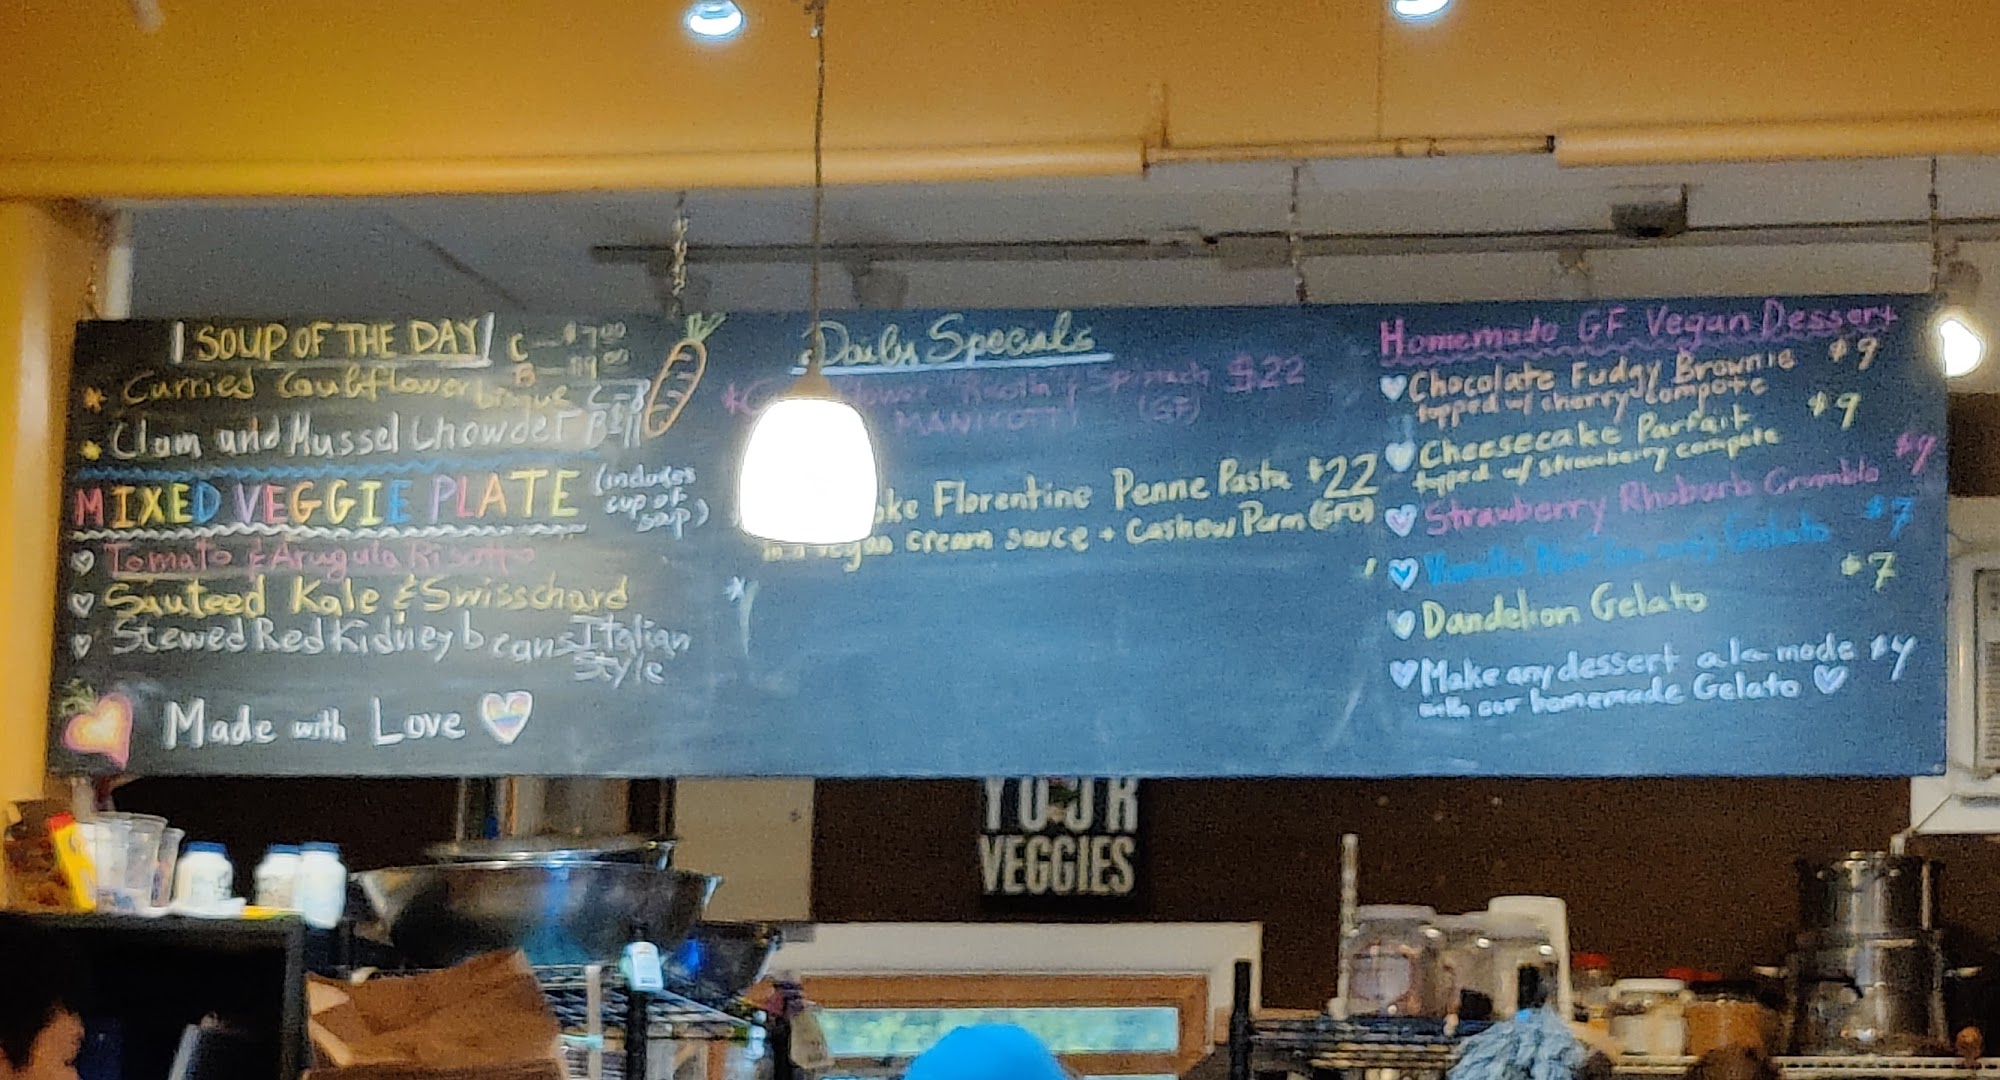 SOUP OF THE DAY C — $7.00
B — $9.00
* Curried Cauliflower bisque C-8
* Clam and Mussel Chowder B-11
MIXED VEGGIE PLATE (includes cup of soup)
Tomato & Arugula Risotto
Sauteed Kale & Swisschard
Stewed Red Kidney beans Italian
Style
Made with Love
Daily Specials
& Spinach $22
MANIKOTTI (GF)
Florentine Penne Pasta $22
vegan cream sauce + Cashew Parm (GFO)
Homemade GF Vegan Dessert
Chocolate Fudgy Brownie $9
topped w/ cherry compote
Cheesecake Parfait $9
topped w/ strawberry compote
Strawberry Rhubarb Crumble $9
Gelato $7
Dandelion Gelato $7
Make any dessert a la mode $4
with our homemade Gelato
YOUR
VEGGIES